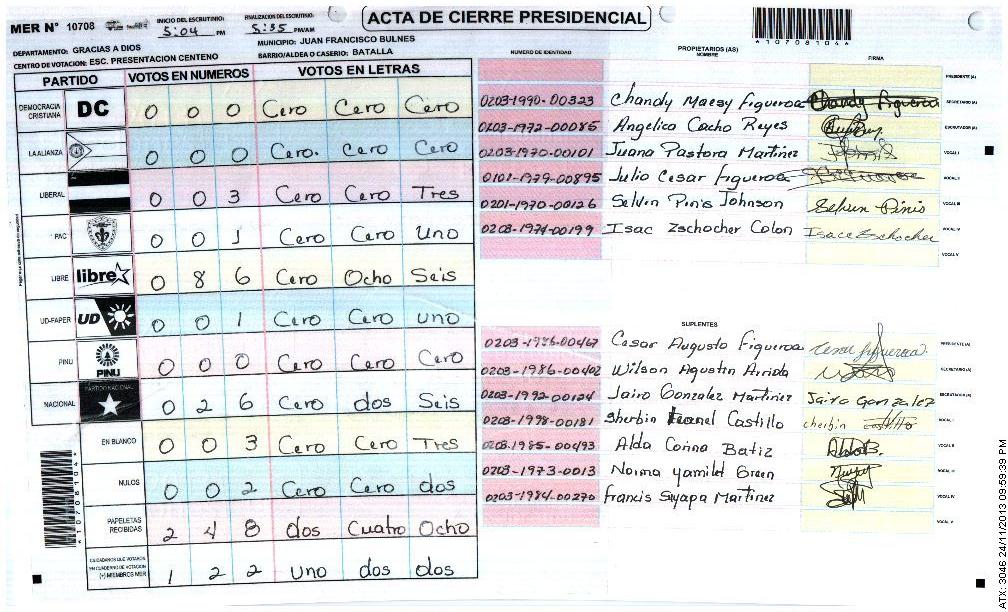 MER N° 10708 INICIO DEL ESCRUTINIO: 5:04 PM FINALIZACION DEL ESCRUTINIO: 5:35 PM/AM
ACTA DE CIERRE PRESIDENCIAL
*10708104*
DEPARTAMENTO: GRACIAS A DIOS MUNICIPIO: JUAN FRANCISCO BULNES
CENTRO DE VOTACION: ESC. PRESENTACION CENTENO BARRIO/ALDEA O CASERIO: BATALLA
PARTIDO VOTOS EN NUMEROS VOTOS EN LETRAS
DEMOCRACIA CRISTIANA DC 0 0 0 Cero Cero Cero
LA ALIANZA 0 0 0 Cero. Cero Cero
LIBERAL 0 0 3 Cero Cero Tres
PAC 0 0 1 Cero Cero uno
LIBRE libre 0 8 6 Cero Ocho Seis
UD-FAPER UD 0 0 1 Cero Cero uno
PINU PINU 0 0 0 Cero Cero Cero
NACIONAL PARTIDO NACIONAL 0 2 6 Cero dos Seis
EN BLANCO 0 0 3 Cero Cero Tres
NULOS 0 0 2 Cero Cero dos
PAPELETAS RECIBIDAS 2 4 8 dos Cuatro Ocho
CIUDADANOS QUE VOTARON EN CUADERNO DE VOTACION (+) MIEMBROS MER 1 2 2 uno dos dos
*10708104*
NUMERO DE IDENTIDAD PROPIETARIOS (AS) NOMBRE FIRMA
PRESIDENTE (A)
0203-1990-00323 Chandy Maesy Figueroa Chandy Figueroa SECRETARIO (A)
0203-1972-00085 Angelica Cacho Reyes ESCRUTADOR (A)
0203-1970-00101 Juana Pastora Martinez VOCAL I
0101-1979-00895 Julio Cesar Figueroa VOCAL II
0201-1970-00126 Selvin Pinis Johnson Selvin Pinis VOCAL III
0208-1974-00199 Isac Zschocher Colon Isacc Zschocher VOCAL IV
VOCAL V
SUPLENTES
0203-1986-00467 Cesar Augusto Figueroa Cesar figueroa PRESIDENTE (A)
0203-1986-00402 Wilson Agustin Arriola SECRETARIO (A)
0203-1992-00124 Jairo Gonzalez Martinez Jairo Gonzalez ESCRUTADOR (A)
0203-1998-00181 Sherbin Castillo cherbin castillo VOCAL I
0203-1985-00493 Alda Corina Batiz Alda B. VOCAL II
0203-1973-0013 Norma yamileth Green VOCAL III
0203-1984-00270 Francis Suyapa Martinez VOCAL IV
VOCAL V
ATX: 3046 24/11/2013 09:59:39 PM